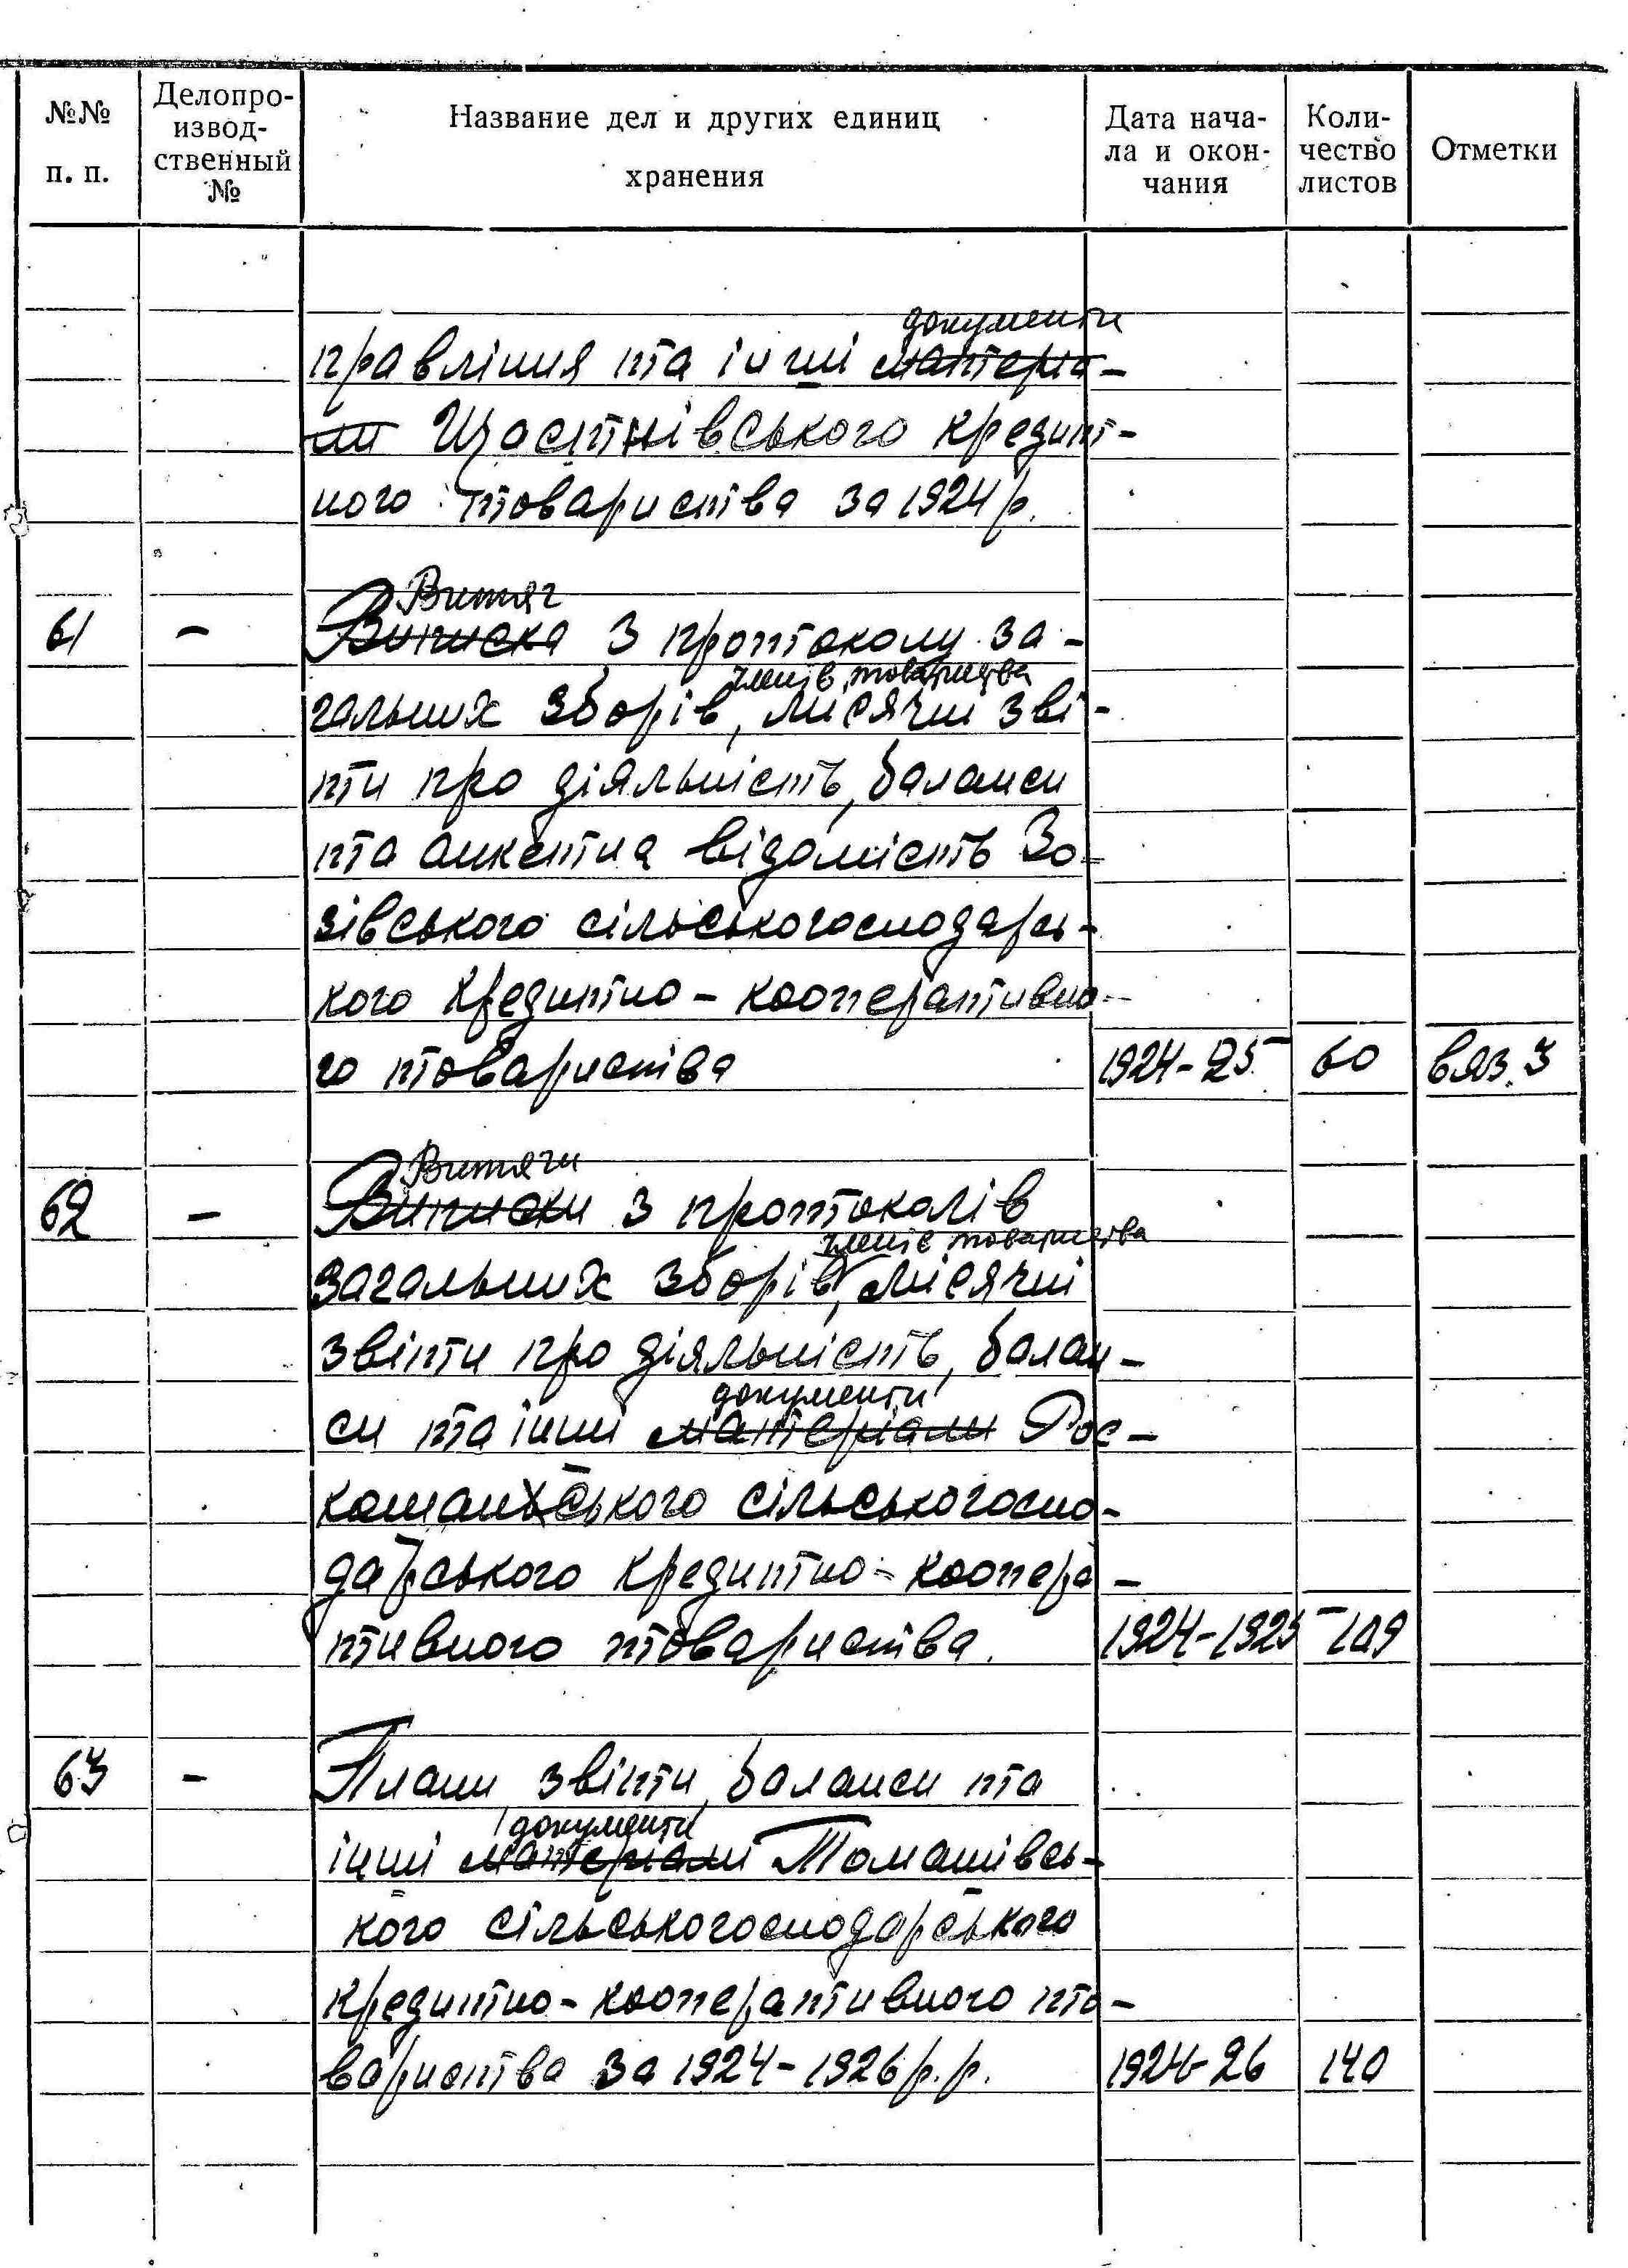 №№ п. п.
Делопро-
извод-
ственный
№
Название дел и других единиц
хранения
Дата нача-
ла и окон-
чания
Коли-
чество
листов
Отметки
документи
правління та інші матеріа-
ли Щастнівського кредит-
ного товариства за 1924 р.
Витяг
61 – Виписка з протоколу за-
членів товариства
гальних зборів, місячні зві-
ти про діяльність, баланси
та анкетна відомість Зо-
зівського сільськогосподарсь-
кого кредитно-кооперативно-
го товариства 1924-25 60 вяз. 3
Витяги
62 – Виписки з протоколів
членів товариства
загальних зборів, місячні
звіти про діяльність, балан-
документи
си та інші матеріали Рос-
кошанського сільськогоспо-
дарського кредитно-коопера-
тивного товариства. 1924-1925 109
63 – Плани звіти, баланси та
документи
інші матеріали Томашівсь-
кого сільськогосподарського
кредитно-кооперативного то-
вариства за 1924-1926 р.р. 1924-26 140